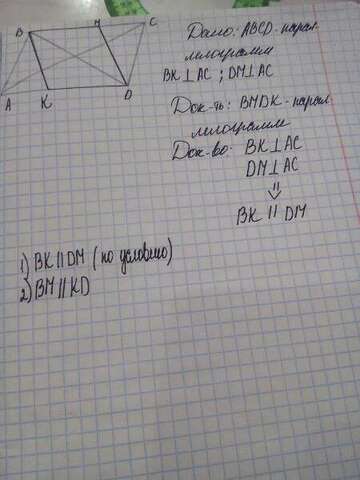 B M C
A K D
Дано: ABCD - парал-
лелограмм
BK⊥AC ; DM⊥AC
Док-ть: BMDK - парал-
лелограмм
Док-во: BK⊥AC
DM⊥AC
⇓
BK || DM
1) BK || DM (по условию)
2) BM || KD